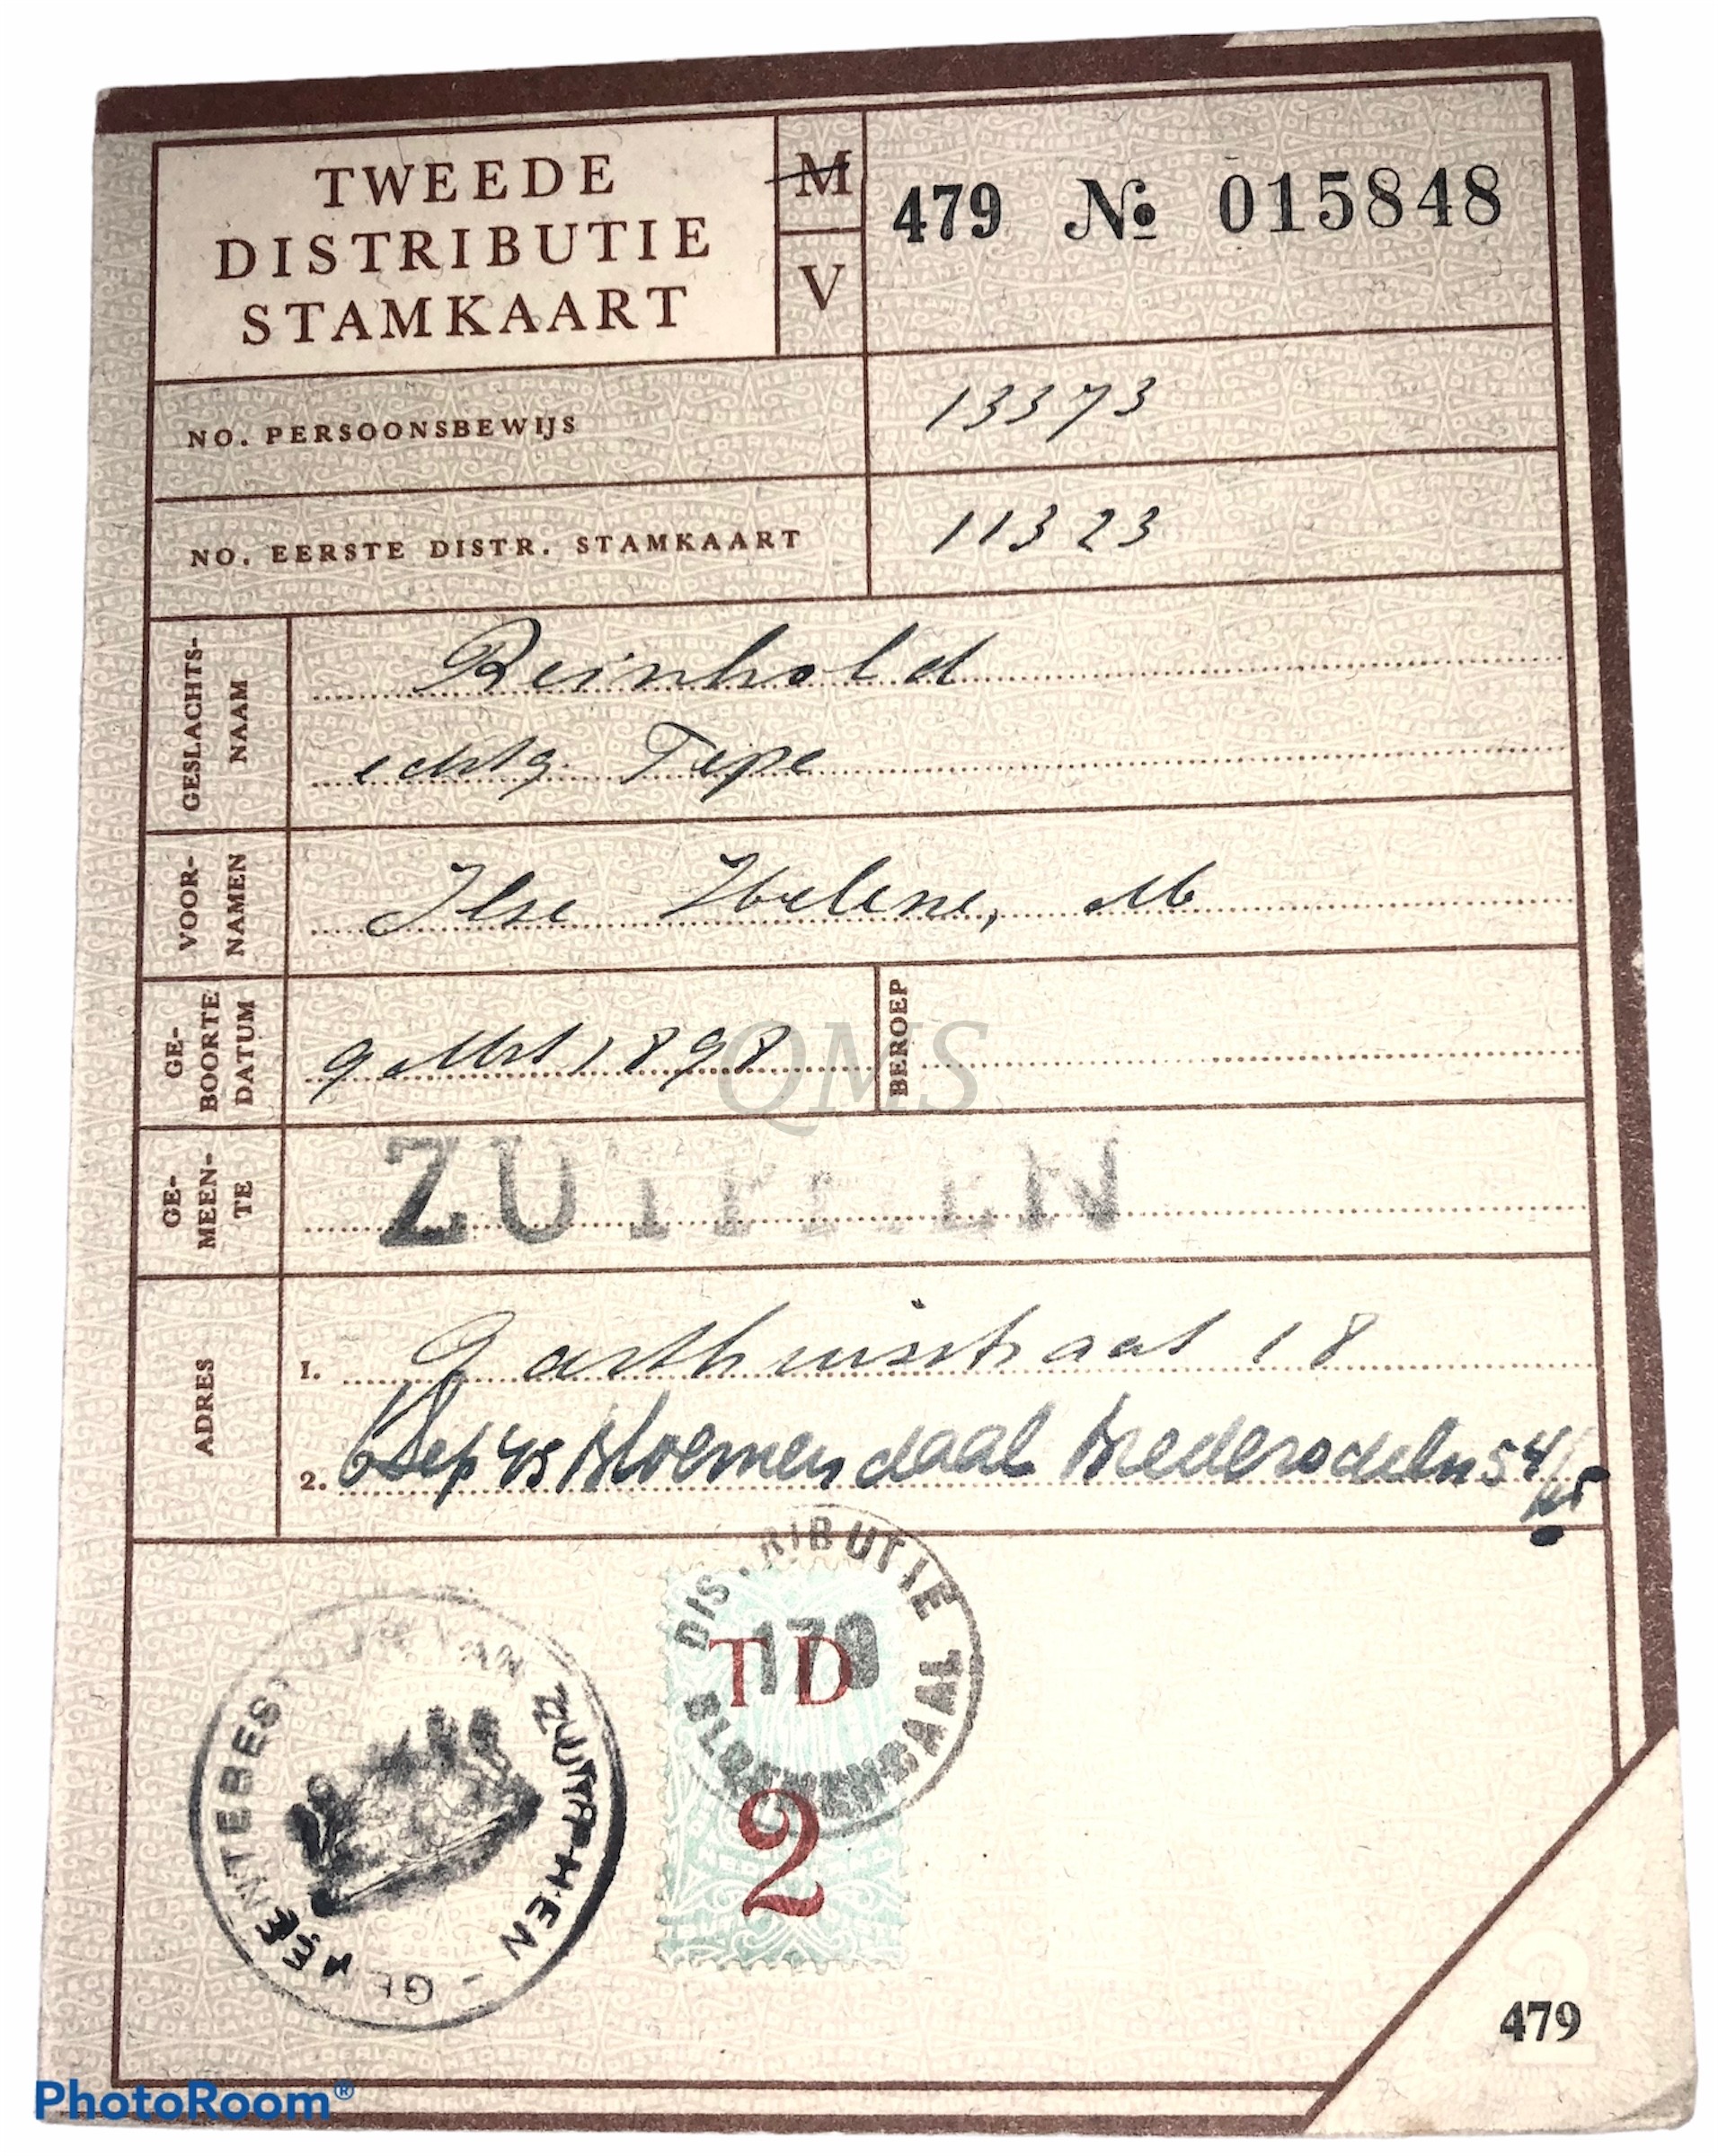 TWEEDE
DISTRIBUTIE
STAMKAART
M
V
479 № 015848
NO. PERSOONSBEWIJS 13373
NO. EERSTE DISTR. STAMKAART 11323
GESLACHTS-
NAAM
Reinhold
echtg. Tepe
VOOR-
NAMEN
Ilse Helene, M
GE-
BOORTE
DATUM
9 Mrt 1898
BEROEP
QMS
GE-
MEEN-
TE
ZUTPHEN
ADRES
1. Gasthuisstraat 18
2. 6 Sep 45 Bloemendaal Brederodeln 54
DISTRIBUTIE
BLOEMENDAAL
170
TD
2
GEMEENTEBESTUUR VAN ZUTPHEN
479
PhotoRoom®